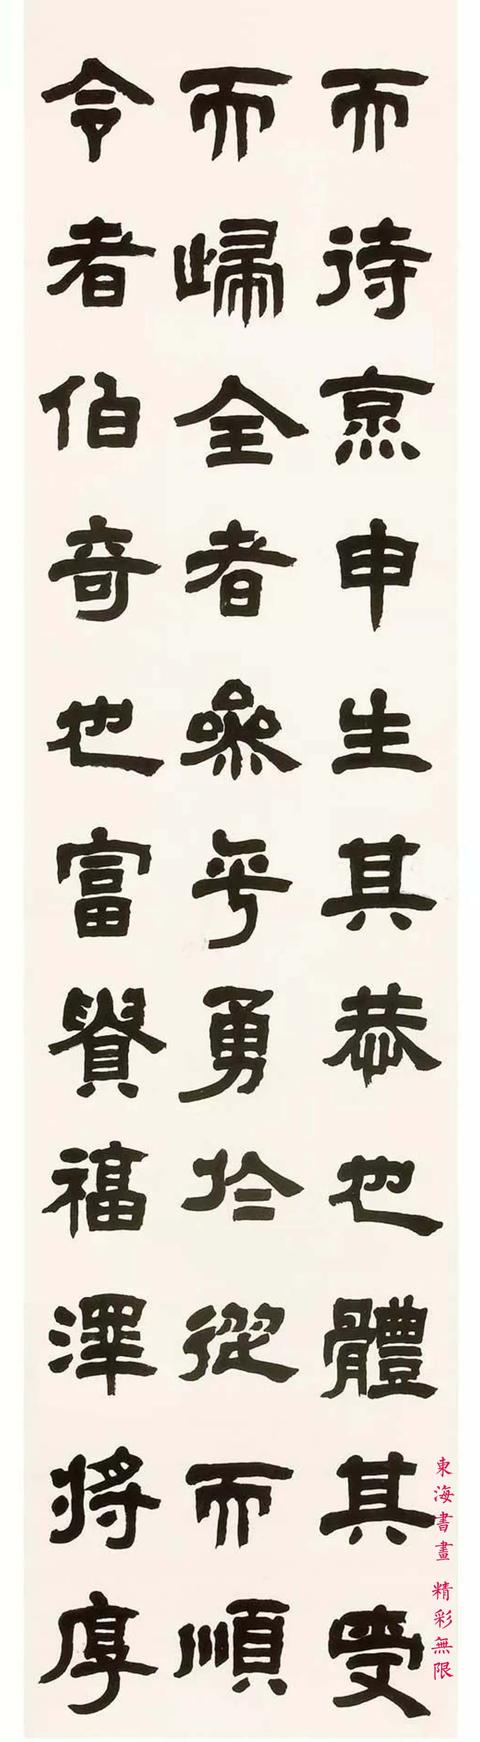 而待烹申生其恭也體其受
而歸全者參乎勇於從而順
令者伯奇也富貴福澤將厚
東海書畫 精彩無限